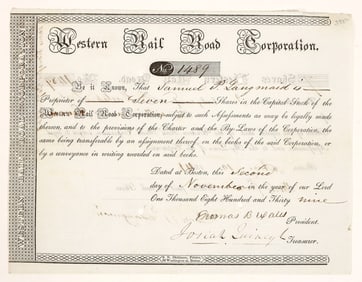 Western Rail Road Corporation.
No 1489
Be it Known, That Samuel P. Langmaid is
Proprietor of Seven Shares in the Capital Stock of the
Western Rail Road Corporation, subject to such Assessments as may be legally made
thereon, and to the provisions of the Charter and the By-Laws of the Corporation, the
same being transferable by an assignment thereof, on the books of the said Corporation, or
by a conveyance in writing recorded on said books.
Dated at Boston, this Second
day of November in the year of our Lord
One Thousand Eight Hundred and Thirty nine
Thomas B. Wales
President.
Josiah Quincy Jr
Treasurer.